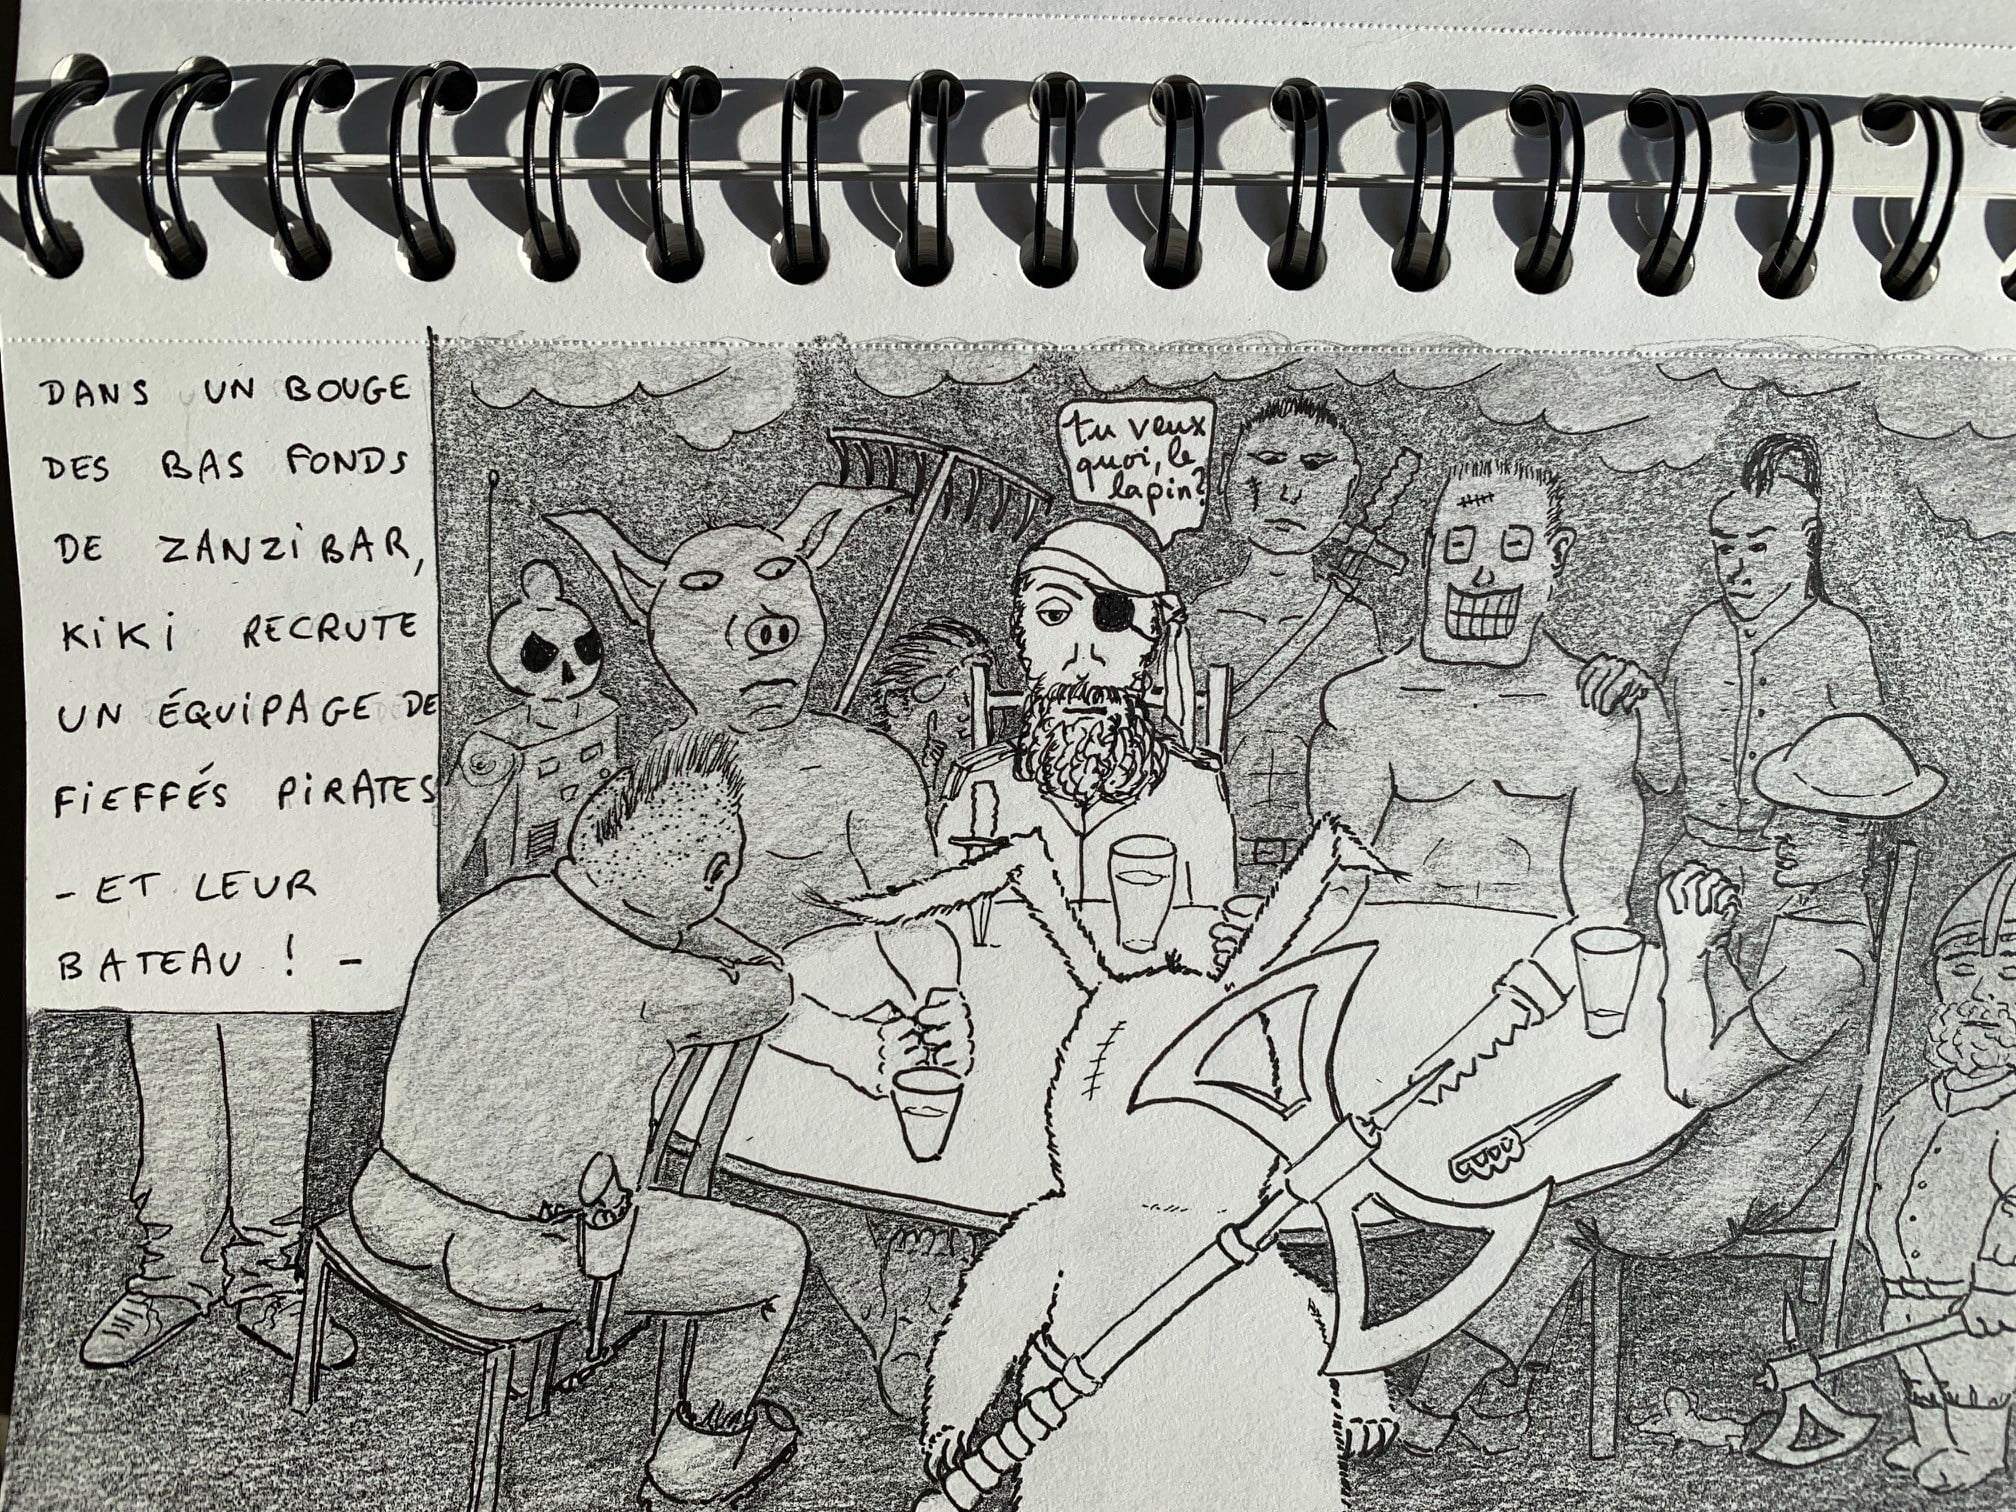 DANS UN BOUGE
DES BAS FONDS
DE ZANZIBAR,
KIKI RECRUTE
UN ÉQUIPAGE DE
FIEFFÉS PIRATES
- ET LEUR
BATEAU ! -
tu veux
quoi, le
lapin?